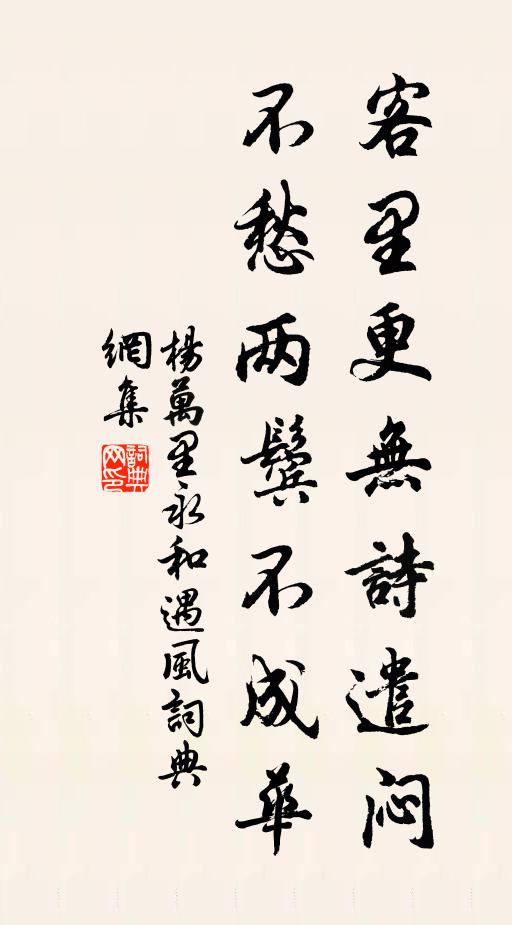 客里更無詩遣闷
不愁两鬓不成華
楊萬里永和遇風詞典
網集
詞典
网印